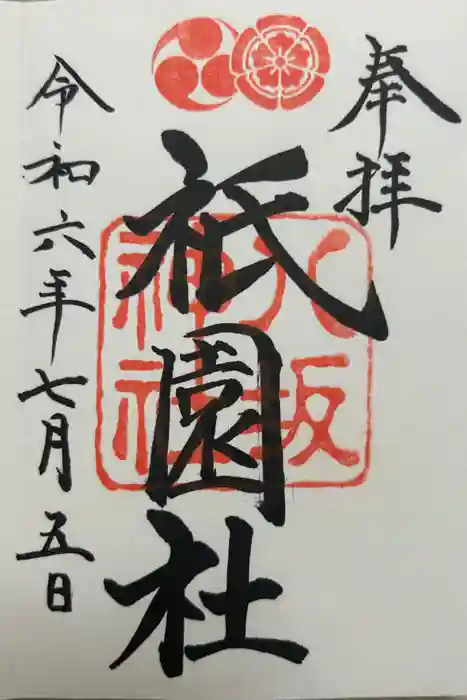 奉拝
八坂
神社
祇園社
令和六年七月五日